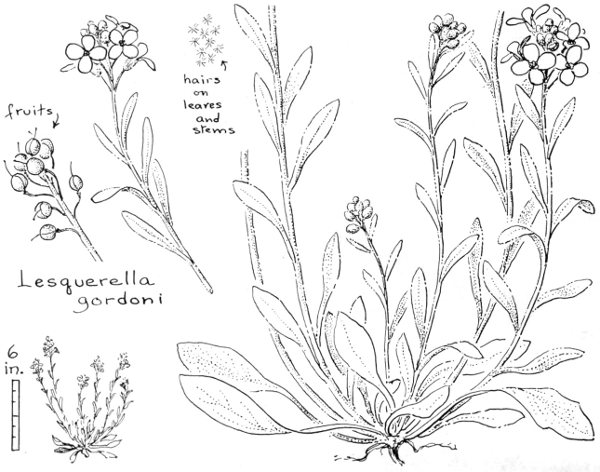 hairs
on
leaves
and
stems
fruits
Lesquerella
gordoni
6
in.